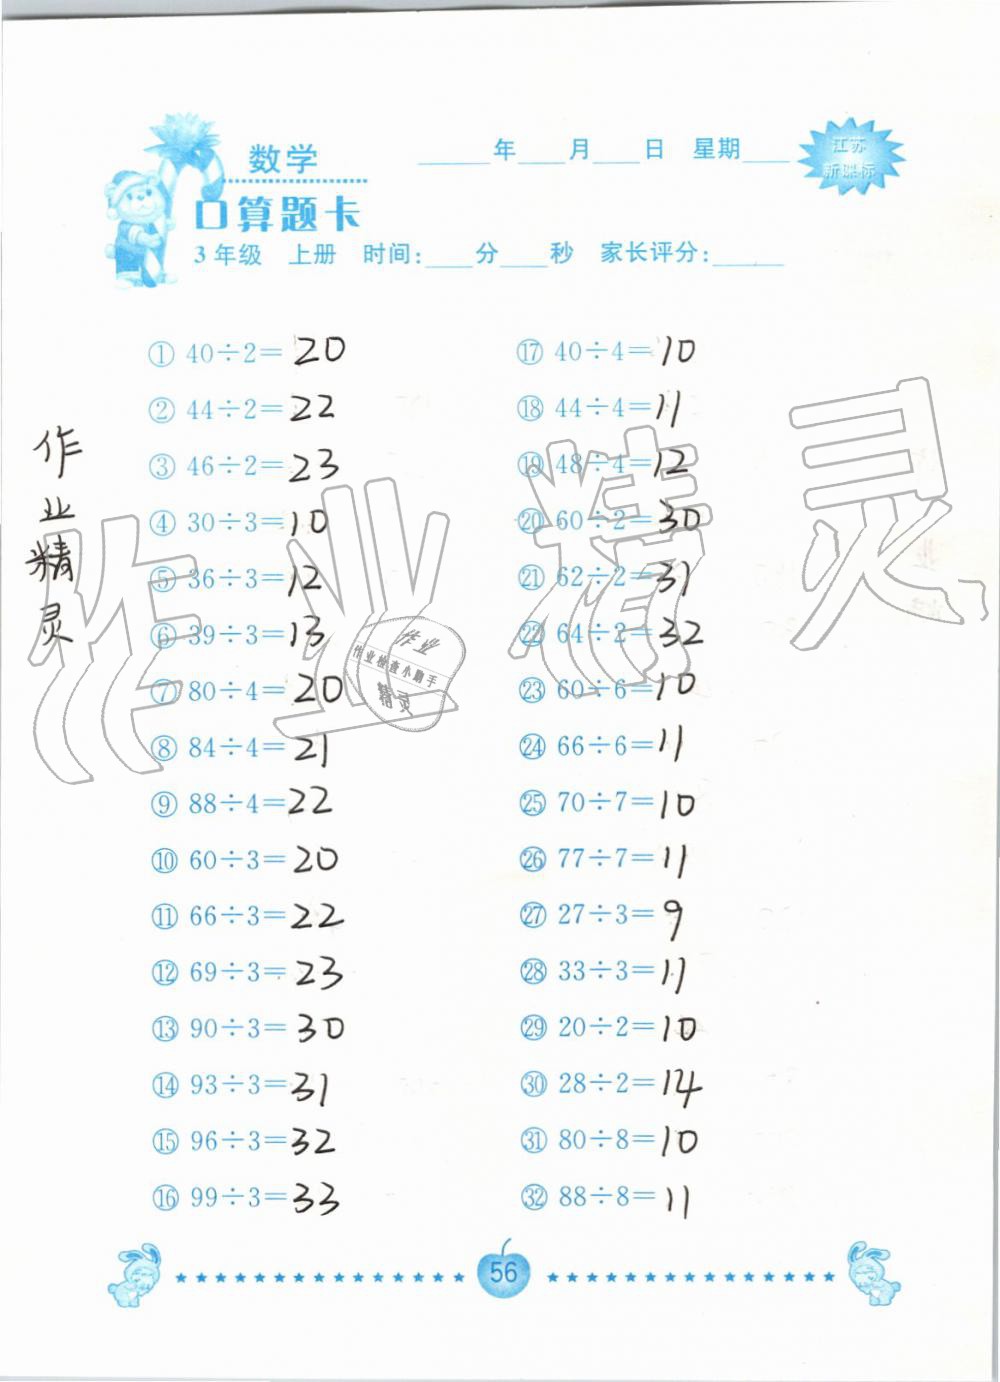 数学
____年___月___日 星期___
江苏
新课标
口算题卡
3年级 上册 时间:___分___秒 家长评分:____
① 40÷2=20
② 44÷2=22
③ 46÷2=23
④ 30÷3=10
⑤ 36÷3=12
⑥ 39÷3=13
⑦ 80÷4=20
⑧ 84÷4=21
⑨ 88÷4=22
⑩ 60÷3=20
⑪ 66÷3=22
⑫ 69÷3=23
⑬ 90÷3=30
⑭ 93÷3=31
⑮ 96÷3=32
⑯ 99÷3=33
⑰ 40÷4=10
⑱ 44÷4=11
⑲ 48÷4=12
⑳ 60÷2=30
㉑ 62÷2=31
㉒ 64÷2=32
㉓ 60÷6=10
㉔ 66÷6=11
㉕ 70÷7=10
㉖ 77÷7=11
㉗ 27÷3=9
㉘ 33÷3=11
㉙ 20÷2=10
㉚ 28÷2=14
㉛ 80÷8=10
㉜ 88÷8=11
作业精灵
作业精灵
作业
作业检查小助手
精灵
56